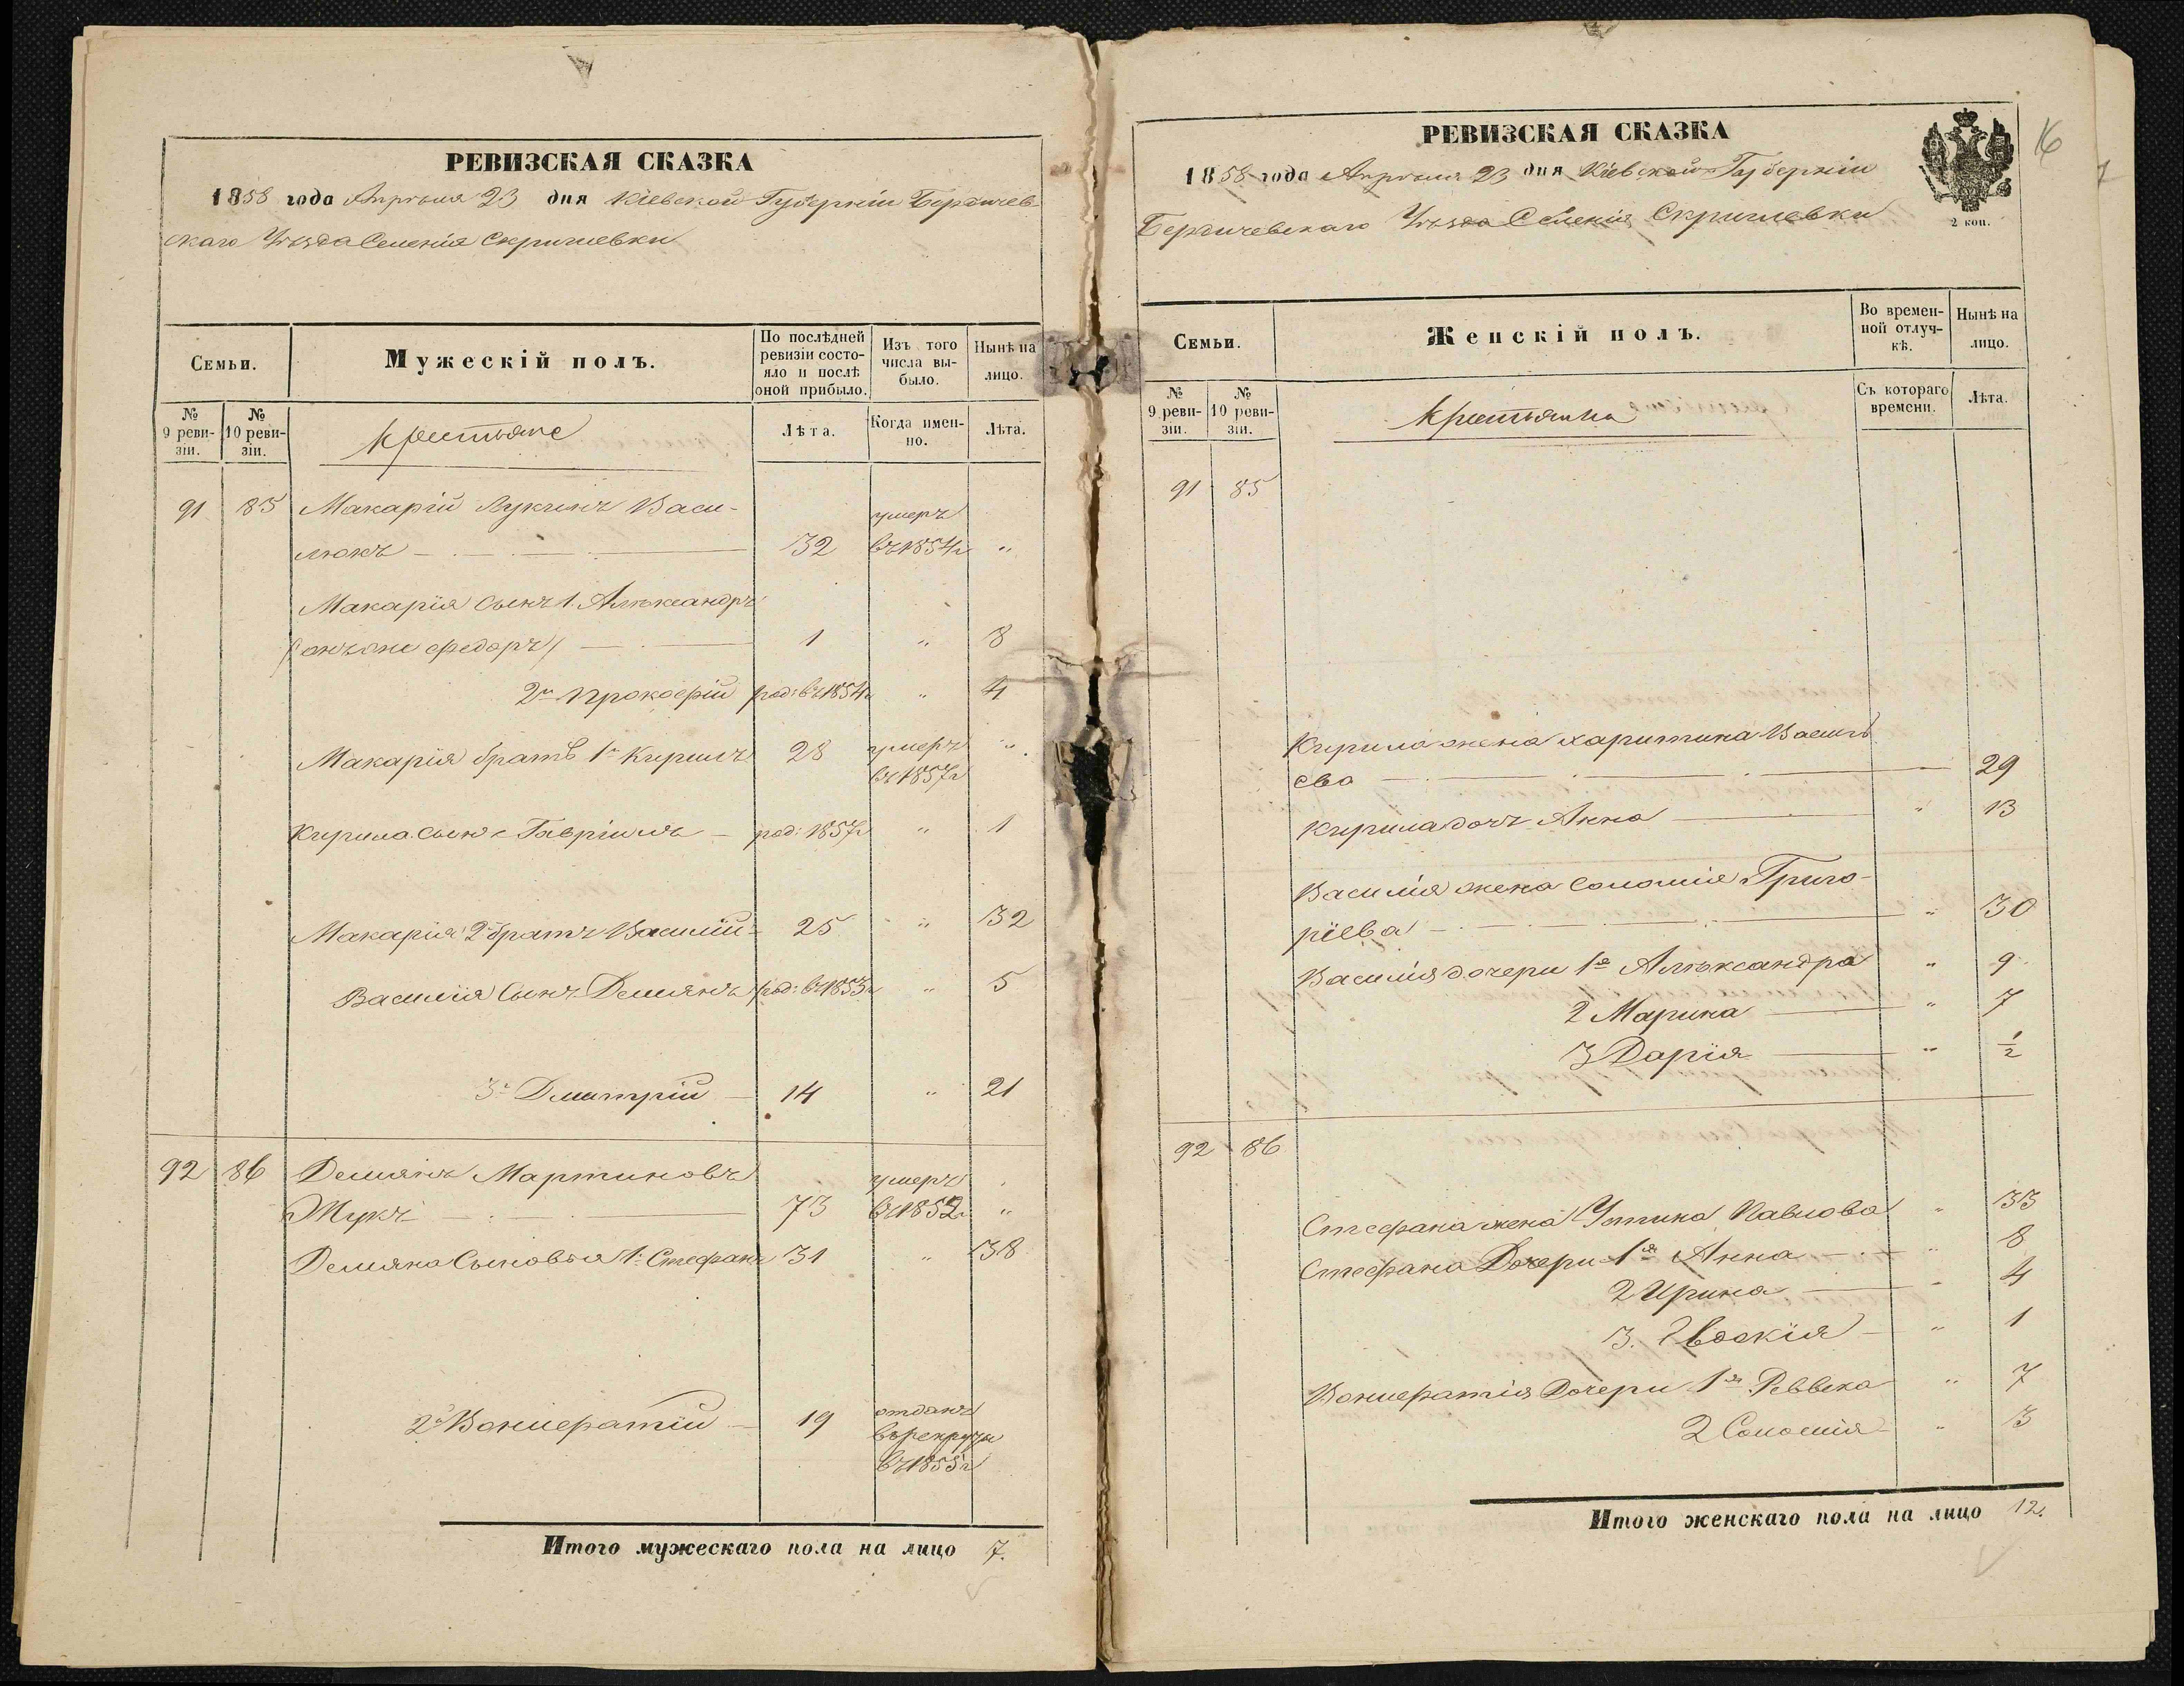 РЕВИЗСКАЯ СКАЗКА
1858 года Апрѣля 23 дня Кіевской Губерніи Бердичев-
скаго Уѣзда Селенія Скригилевки
Семьи.
Мужескій полъ.
По послѣдней ревизіи состояло и послѣ оной прибыло.
Изъ того числа выбыло.
Нынѣ на лицо.
№ 9 ревизіи.
№ 10 ревизіи.
Крестьяне
Лѣта.
Когда именно.
Лѣта.
91 85 Макарій Лукинъ Васи-
люкъ 32 умеръ въ 1854г „
Макарія сынъ 1. Алѣксандръ
(онъ же Федоръ) 1 „ 8
2й Прокофій род: въ 1854г „ 4
Макарія братъ 1й Кирилъ 28 умеръ въ 1857г „
Кирила сынъ Гавріилъ род: 1857г „ 1
Макарія 2й братъ Василій 25 „ 32
Василія сынъ Демянъ род: въ 1853г „ 5
3й Дмитрій 14 „ 21
92 86 Демянъ Мартиновъ
Жукъ 73 умеръ въ 1852г „
Демяна Сыновья 1й Стефанъ 31 „ 38
2й Вонифатій 19 отданъ въ рекруты въ 1855г
Итого мужескаго пола на лицо 7.
16
РЕВИЗСКАЯ СКАЗКА
1858 года Апрѣля 23 дня Кіевской Губерніи
Бердичевскаго Уѣзда Селенія Скригилевки
2 коп.
Семьи.
Женскій полъ.
Во временной отлучкѣ.
Нынѣ на лицо.
№ 9 ревизіи.
№ 10 ревизіи.
Крестьянки
Съ котораго времени.
Лѣта.
91 85
Кирила жена Харитина Василь
ева 29
Кирила дочь Анна „ 13
Василія жена Соломія Григо-
ріева „ 30
Василія дочери 1я Алѣксандра „ 9
2 Марина „ 7
3 Дарія „ 1/2
92 86
Стефана жена Устина Павлова „ 33
Стефана Дочери 1я Анна „ 8
2 Ирина „ 4
3. Евдокія „ 1
Вонифатія Дочери 1я Реввека „ 7
2 Соломія „ 3
Итого женскаго пола на лицо 12.